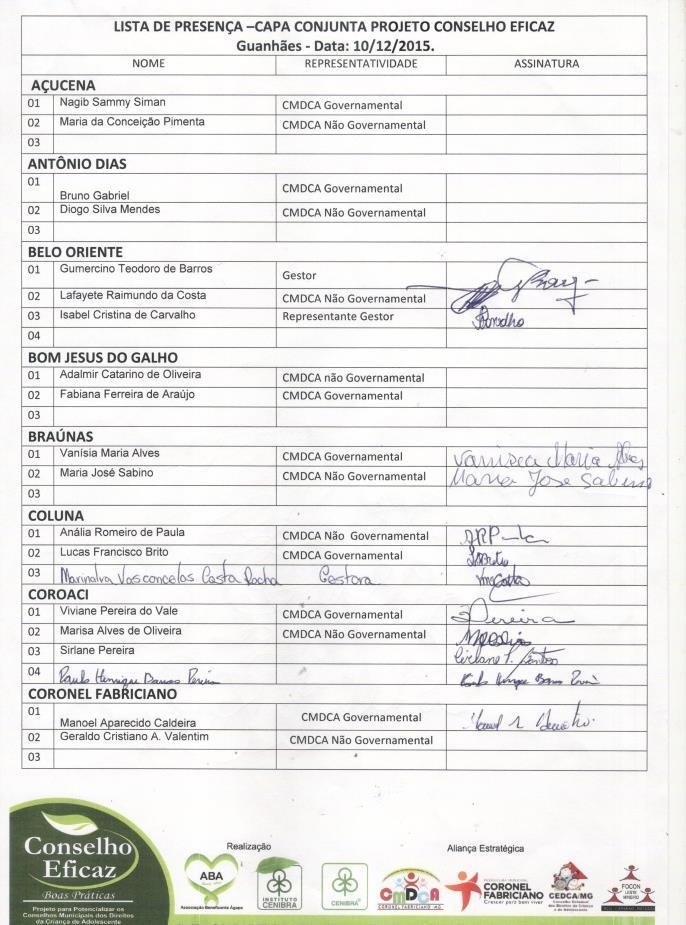 LISTA DE PRESENÇA –CAPA CONJUNTA PROJETO CONSELHO EFICAZ
Guanhães - Data: 10/12/2015.
NOME REPRESENTATIVIDADE ASSINATURA
AÇUCENA
01 Nagib Sammy Siman CMDCA Governamental
02 Maria da Conceição Pimenta CMDCA Não Governamental
03
ANTÔNIO DIAS
01 Bruno Gabriel CMDCA Governamental
02 Diogo Silva Mendes CMDCA Não Governamental
03
BELO ORIENTE
01 Gumercino Teodoro de Barros Gestor
02 Lafayete Raimundo da Costa CMDCA Não Governamental
03 Isabel Cristina de Carvalho Representante Gestor
04
BOM JESUS DO GALHO
01 Adalmir Catarino de Oliveira CMDCA não Governamental
02 Fabiana Ferreira de Araújo CMDCA Governamental
03
BRAÚNAS
01 Vanísia Maria Alves CMDCA Governamental Vanisia Maria Alves
02 Maria José Sabino CMDCA Não Governamental Maria Jose Sabino
03
COLUNA
01 Anália Romeiro de Paula CMDCA Não Governamental
02 Lucas Francisco Brito CMDCA Governamental
03 Marinalva Vasconcelos Costa Rocha Gestora
COROACI
01 Viviane Pereira do Vale CMDCA Governamental Pereira
02 Marisa Alves de Oliveira CMDCA Não Governamental
03 Sirlane Pereira
04 Paulo Henrique Pereira
CORONEL FABRICIANO
01 Manoel Aparecido Caldeira CMDCA Governamental
02 Geraldo Cristiano A. Valentim CMDCA Não Governamental
03
Conselho
Eficaz
Boas Práticas
Projeto para Potencializar os
Conselhos Municipais dos Direitos
da Criança de Adolescente
Realização
Aliança Estratégica
ABA
Associação Beneficente Ágape
INSTITUTO
CENIBRA
CENIBRA
CMDCA
CORONEL FABRICIANO MG
CORONEL
FABRICIANO
Crescer para bem viver
CEDCA/MG
FOCON
LESTE
MINEIRO